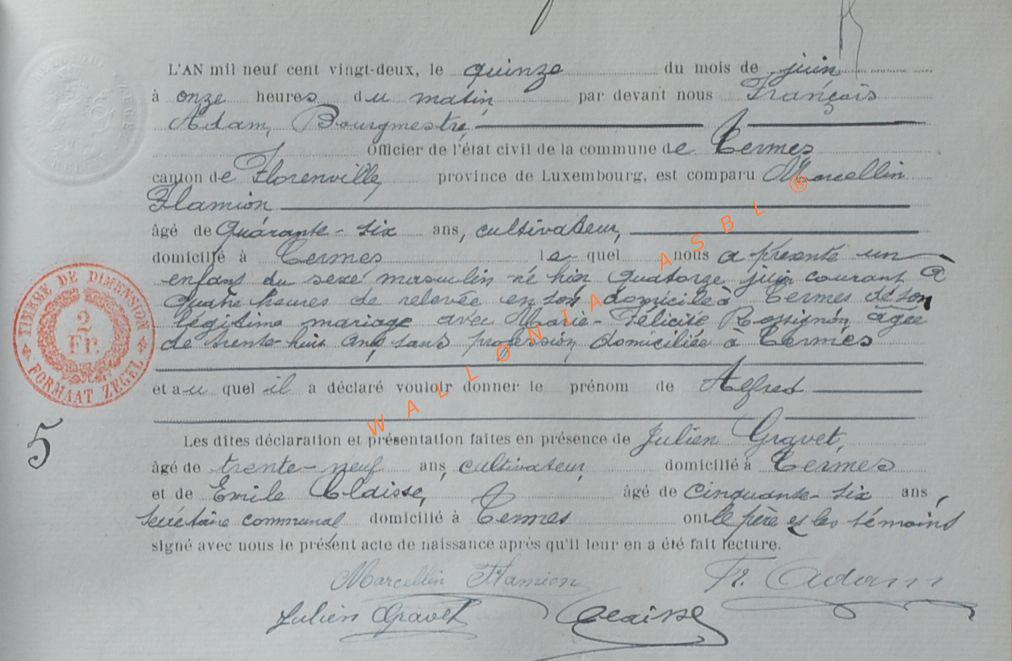 L'AN mil neuf cent vingt-deux, le quinze du mois de juin
à onze heures du matin par devant nous François
Adam, Bourgmestre
Officier de l'état civil de la commune de Termes
canton de Florenville, province de Luxembourg, est comparu Marcellin
Flamion
âgé de Quarante-six ans, cultivateur,
domicilié à Termes le quel nous a présenté un
enfant du sexe masculin né hier quatorze juin courant à
quatre heures de relevée en son domicile à Termes de son
légitime mariage avec Marie-Félicité Rossignon, âgée
de trente-huit ans, sans profession, domiciliée à Termes
et au quel il a déclaré vouloir donner le prénom de Alfred
Les dites déclaration et présentation faites en présence de Julien Gravet,
âgé de trente-neuf ans, cultivateur, domicilié à Termes
et de Emile Claisse, âgé de cinquante-six ans,
secrétaire communal domicilié à Termes ont le père et les témoins
signé avec nous le présent acte de naissance après qu'il leur en a été fait lecture.
Marcellin Flamion Fr. Adam
Julien Gravet Claisse
TIMBRE DE DIMENSION
2
Fr.
FORMAAT ZEGEL
5
WALLONIA ASBL ®